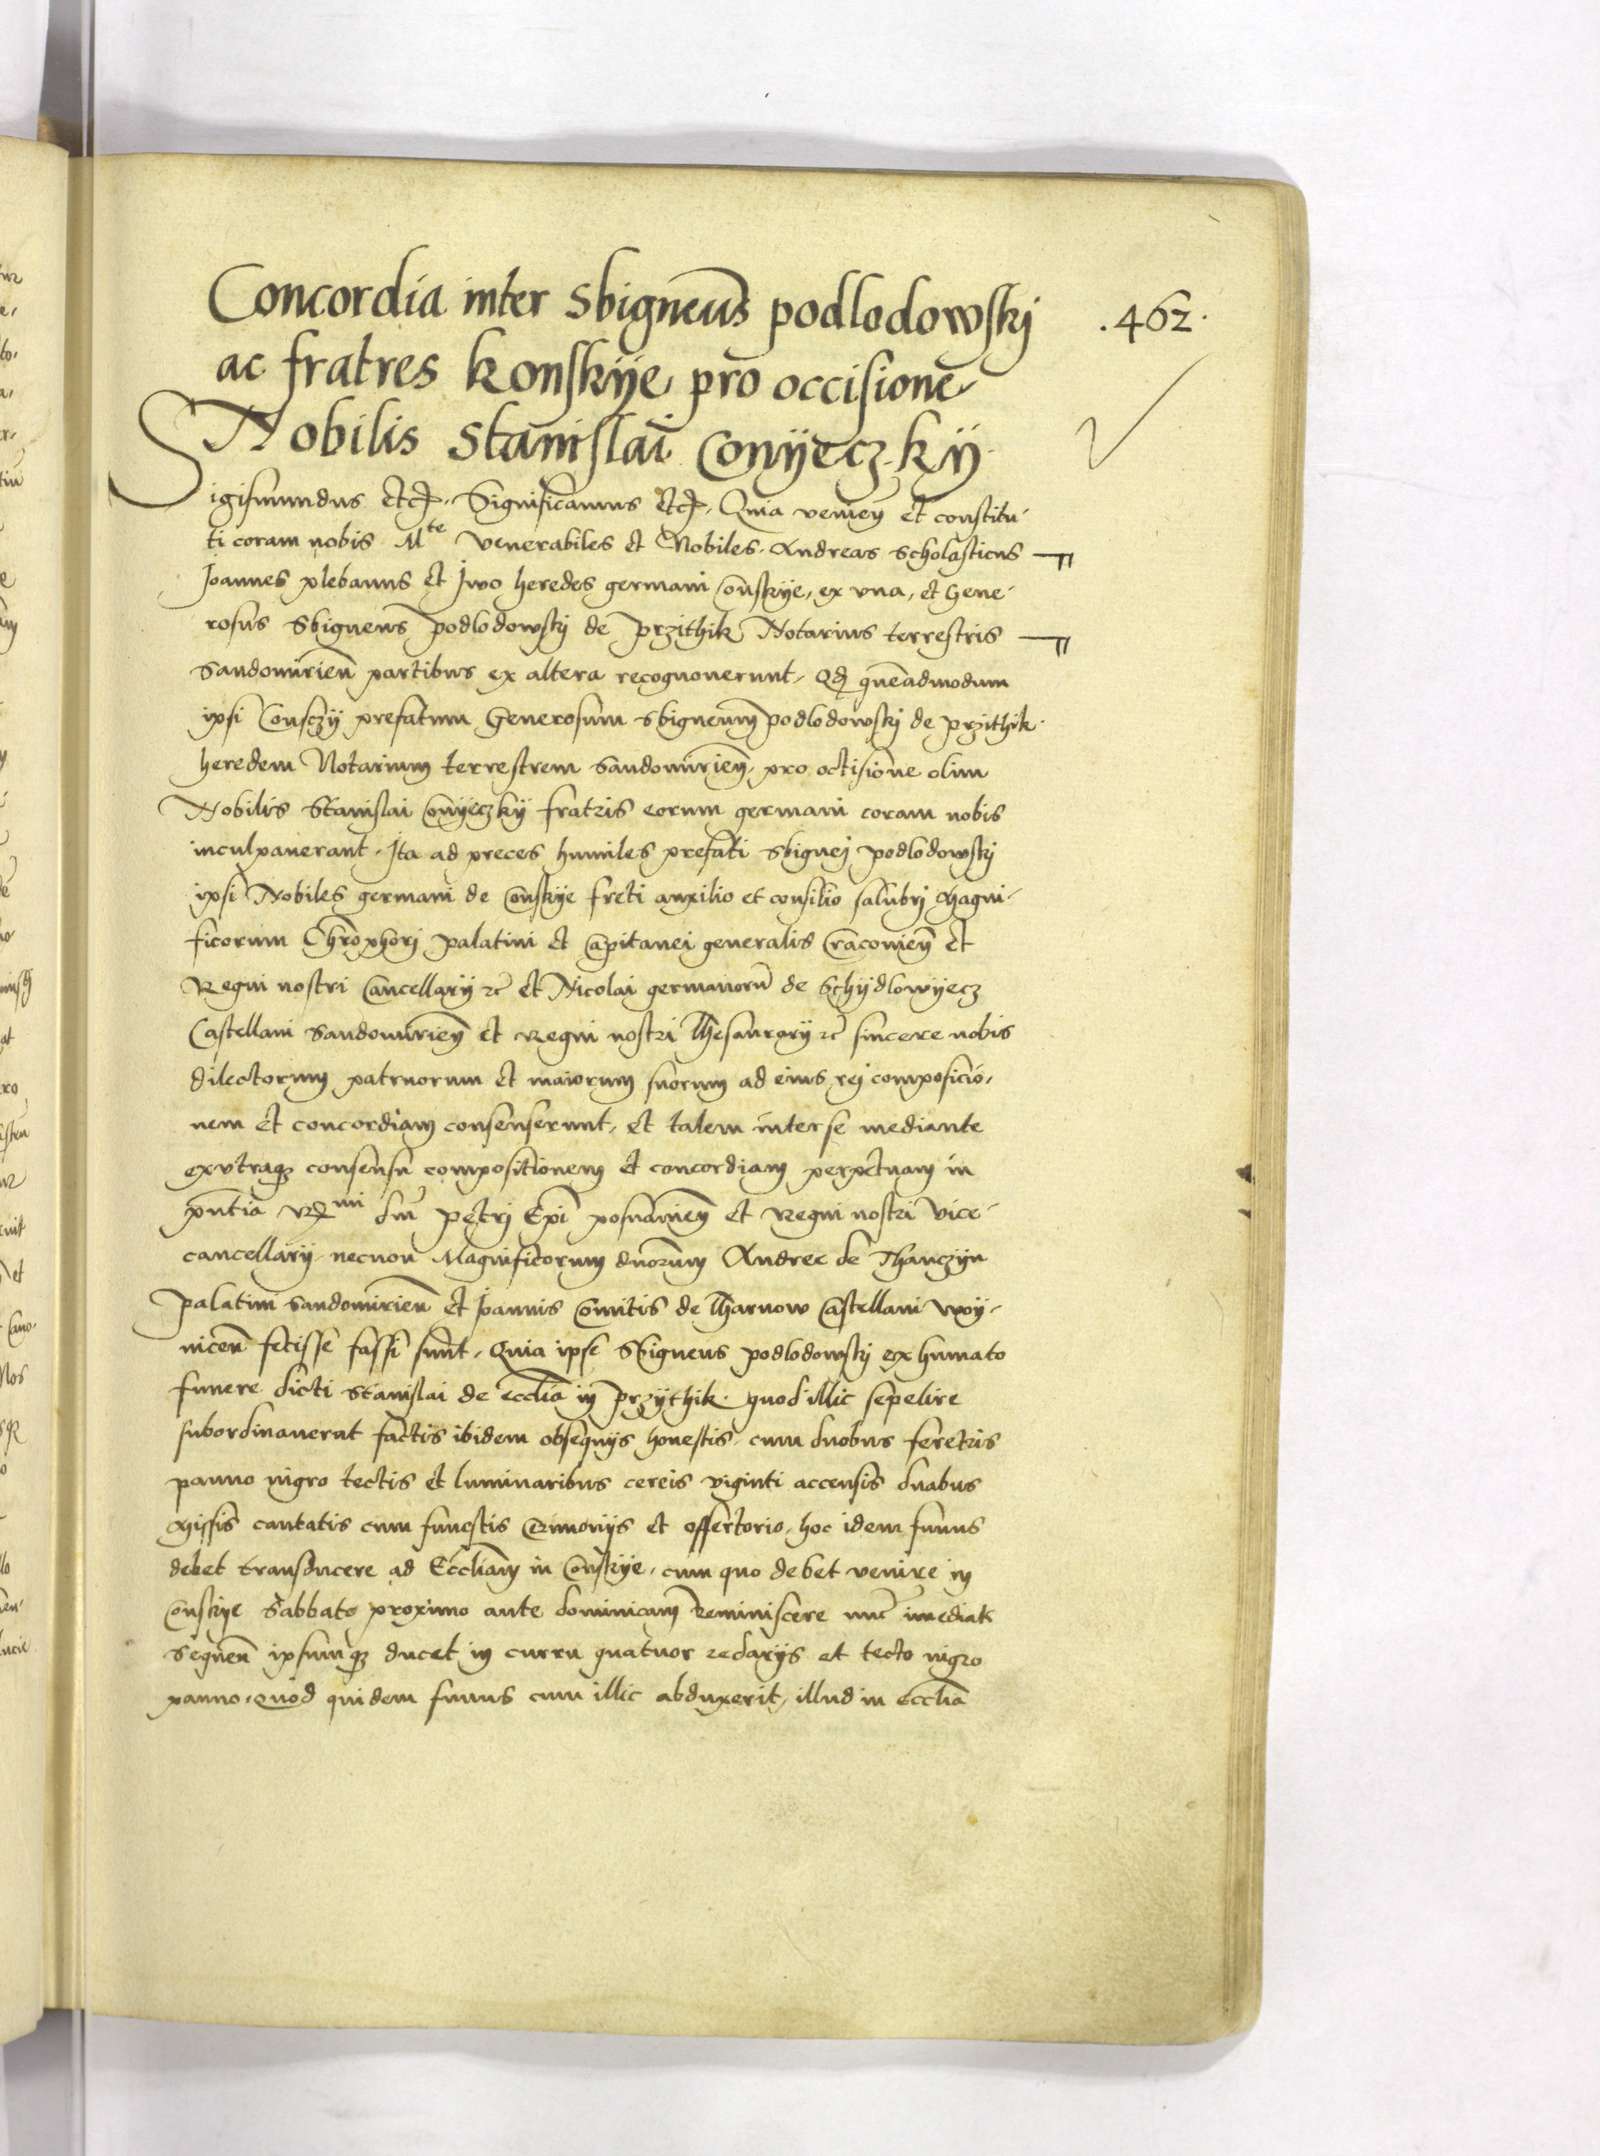 Concordia inter Sbigneum podlodowskj
.462.
ac fratres konskÿe pro occisione
Nobilis Stanislai Conÿeczkÿ
Sigismundus etc. Significamus etc. Quia venien et constitu-
ti coram nobis Mte Venerabiles et Nobiles Andreas scholasticus
Joannes plebanus et Jwo heredes germani Conskÿe, ex vna, et Gene-
rosus Sbigneus podlodowskj de Przithik Notarius terrestris
Sandomirien partibus ex altera recognouerunt, Qd quēadmodum
ipsi Consczÿ prefatum Generosum Sbigneum podlodowskj de przithik
heredem Notarium terrestrem Sandomirien, pro occisione olim
Nobilis Stanislai Conÿeczkÿ fratris eorum germani coram nobis
inculpauerant, Ita ad preces humiles prefati Sbignej podlodowskj
ipsi Nobiles germani de Conskÿe freti auxilio et consilio salubrj Magni-
ficorum Chrophorj palatini et Capitanei generalis Cracouien et
Regni nostri Cancellarÿ etc et Nicolai germanorū de Schÿdlowÿecz
Castellani Sandomirien et Regni nostri Thesaurarÿ etc sincere nobis
dilectorum patruorum et maiorum suorum ad eius rej composicio-
nem et concordiam consenserunt, et talem inter se mediante
exvtraqz consensu compositionem et concordiam perpetuam in
pntia Rmi dni petrj Epi posnanien et Regni nostri Vice-
cancellarÿ necnon Magnificorum dnorum Andree de Thanczÿn
palatini Sandomirien et Joannis Comitis de Tharnow Castellani Woÿ-
nicen fecisse fassi sunt, Quia ipse Sbigneus podlodowskj exhumato
funere dicti Stanislai de ecclia in przÿthik quod illic sepelire
subordinauerat factis ibidem obsequÿs honestis, cum duobus feretris
panno nigro tectis et luminaribus cereis viginti accensis duabus
Missis cantatis cum funestis Cerimonÿs et offertorio, hoc idem funus
debet transducere ad Eccliam in Conskÿe, cum quo debet venire in
Conskÿe Sabbato proximo ante dominicam Reminiscere nūc imediate
sequen ipsumqz ducet in curru quatuor redarÿs et tecto nigro
panno, Quod quidem funus cum illic abduxerit, illud in ecclia